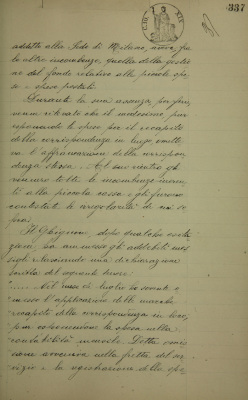 337
addetto alla Sede di Milano, aveva, fra
le altre incombenze, quella della gestio=
ne del fondo relativo alle piccole spe=
se e spese postali.
Durante la sua assenza, per ferie,
venne rilevato che il medesimo, pur
esponendo le spese per il recapito
della corrispondenza in luogo, omette=
va l'affrancazione della corrispon=
denza stessa. Al suo rientro gli
vennero tolte le incombenze ineren=
ti alla piccola cassa e gli furono
contestate le irregolarità di cui so=
pra.
Il Ghignoni, dopo qualche
ha ammesso gli addebiti mos=
sigli, rilasciando una dichiarazione
scritta del seguente tenore:
"..... Nel mese di luglio ho omesso
l'applicazione delle marche
recapito della corrispondenza in loco,
pur esponendone la spesa nella
contabilità mensile. Detta omis=
sione avveniva nella fretta del ser=
vizio e la registrazione delle spe=